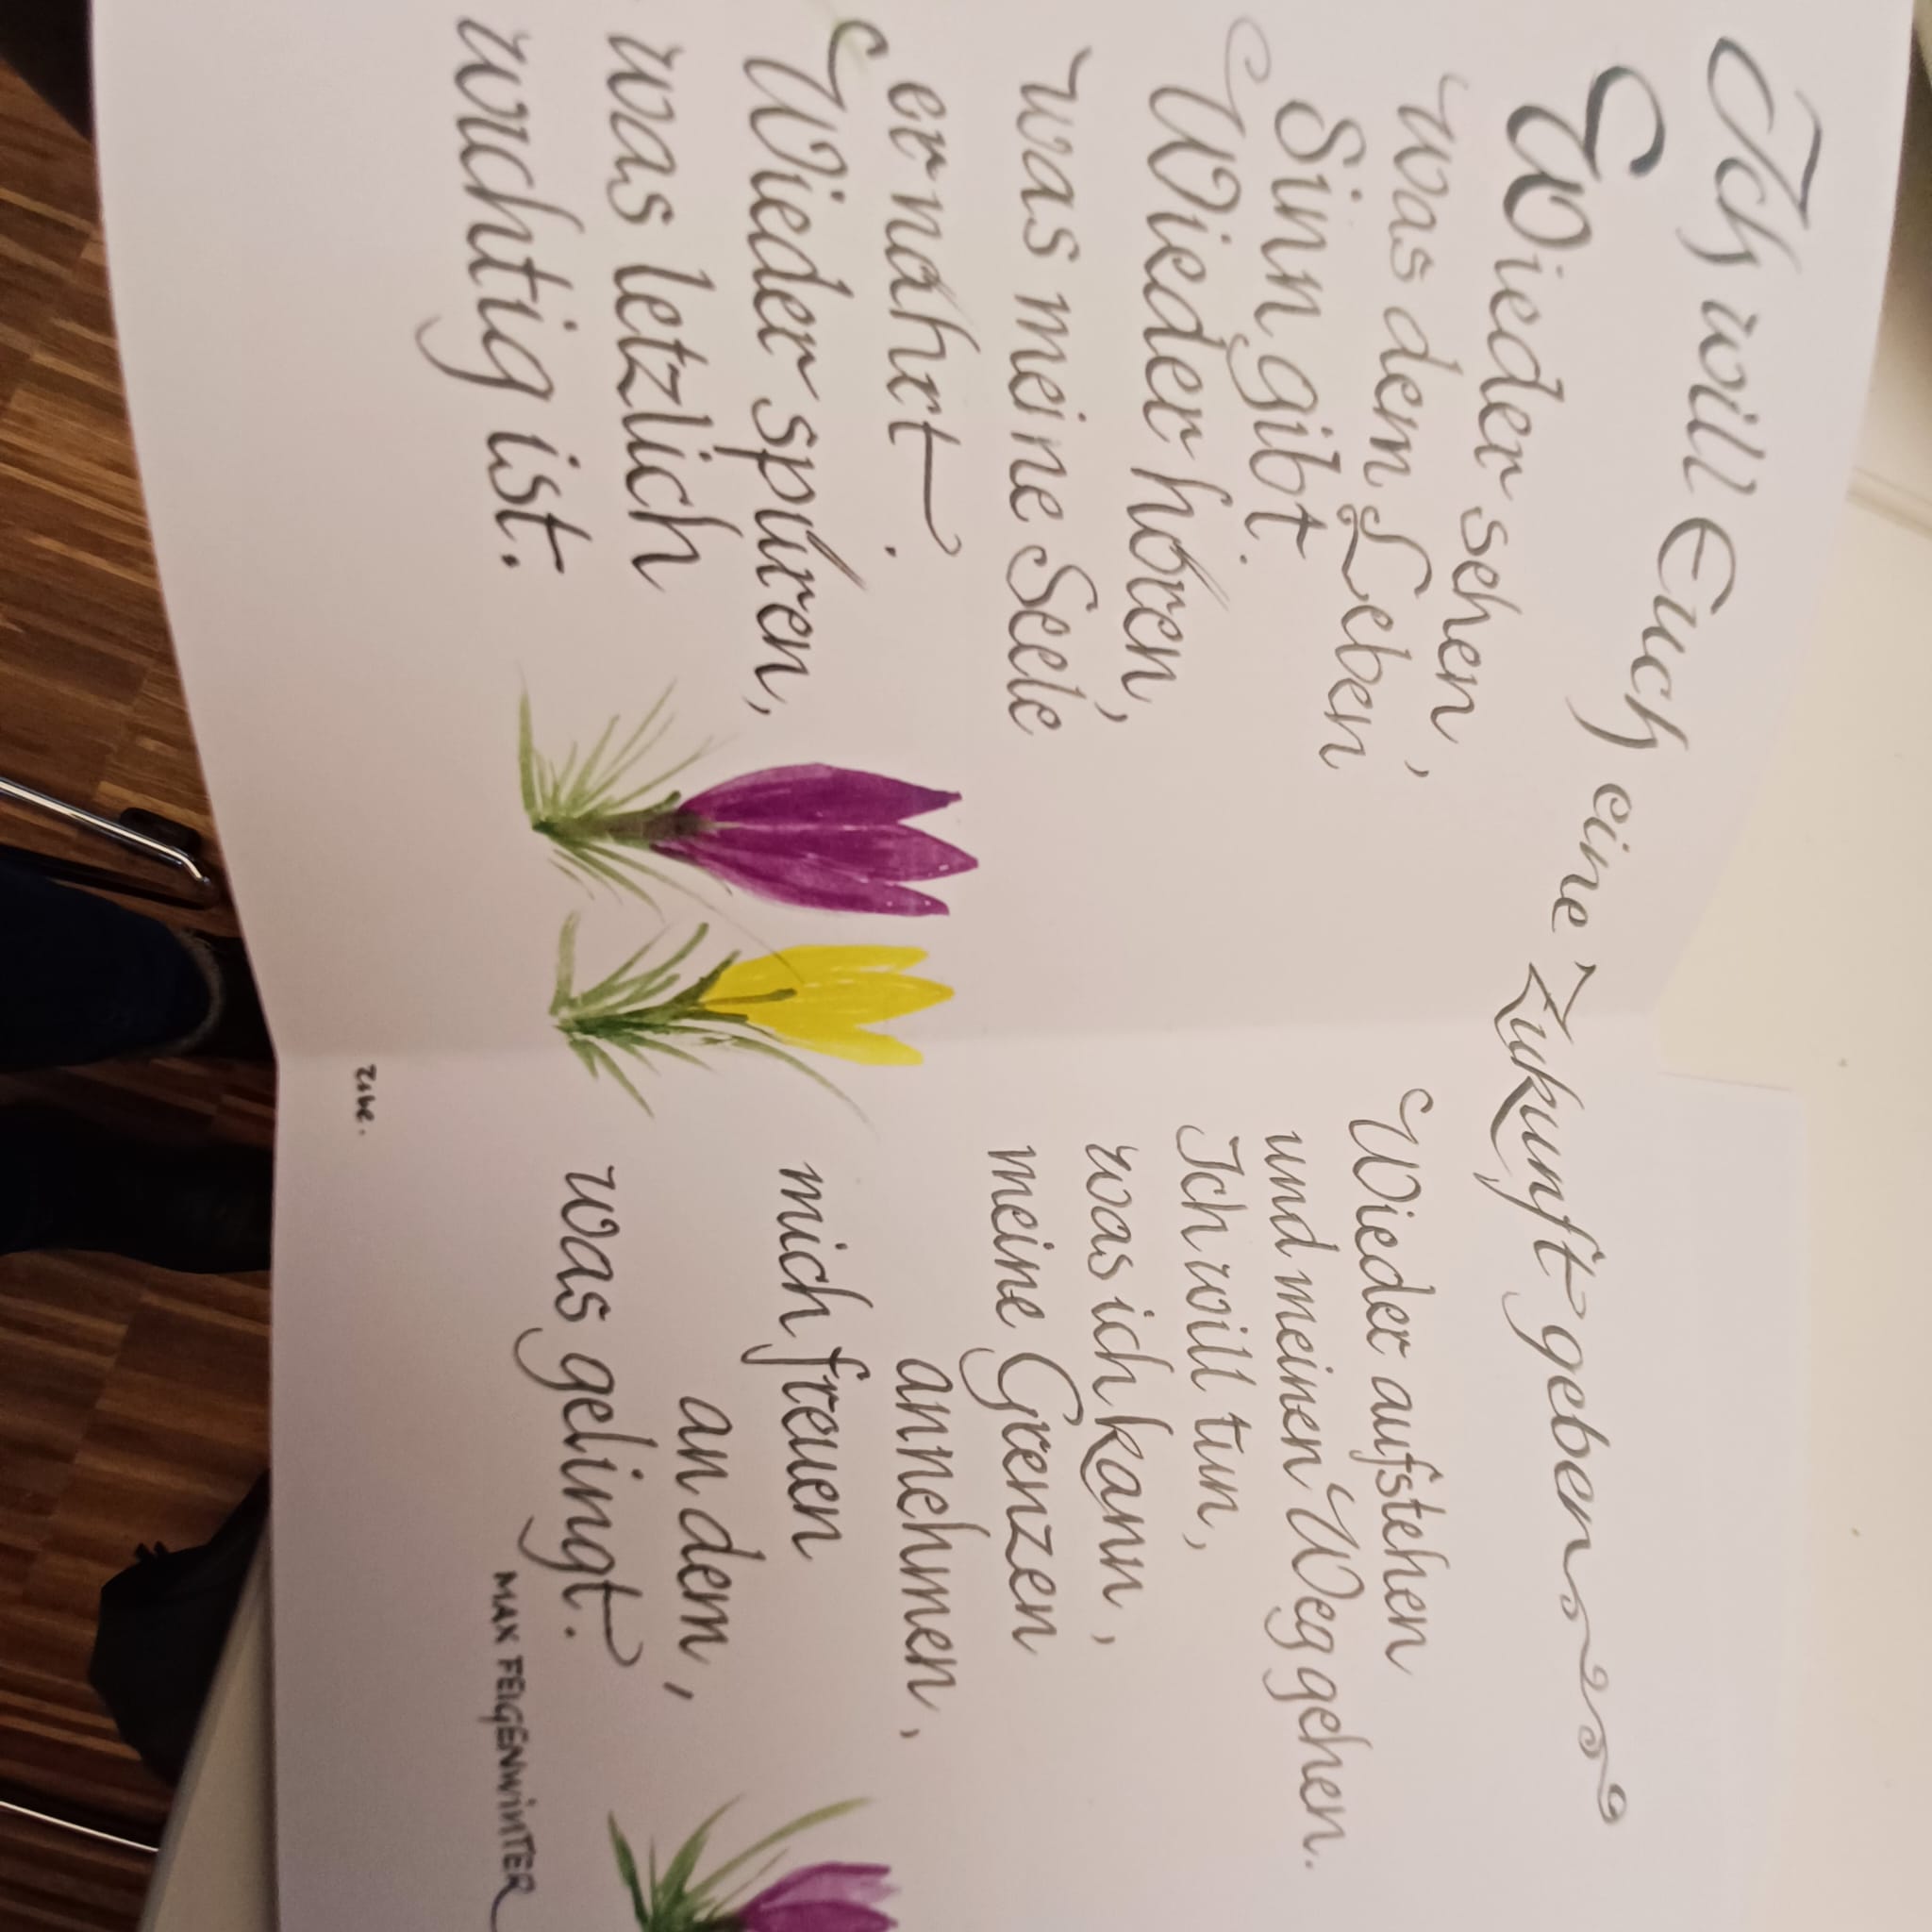 Ich will Euch eine Zukunft geben
Wieder sehen,
was dem Leben
Sinn gibt.
Wieder hören,
was meine Seele
ernährt.
Wieder spüren,
was letzlich
wichtig ist.
Wieder aufstehen
und meinen Weg gehen.
Ich will tun,
was ich kann,
meine Grenzen
annehmen,
mich freuen
an dem,
was gelingt.
MAX FEIGENWINTER